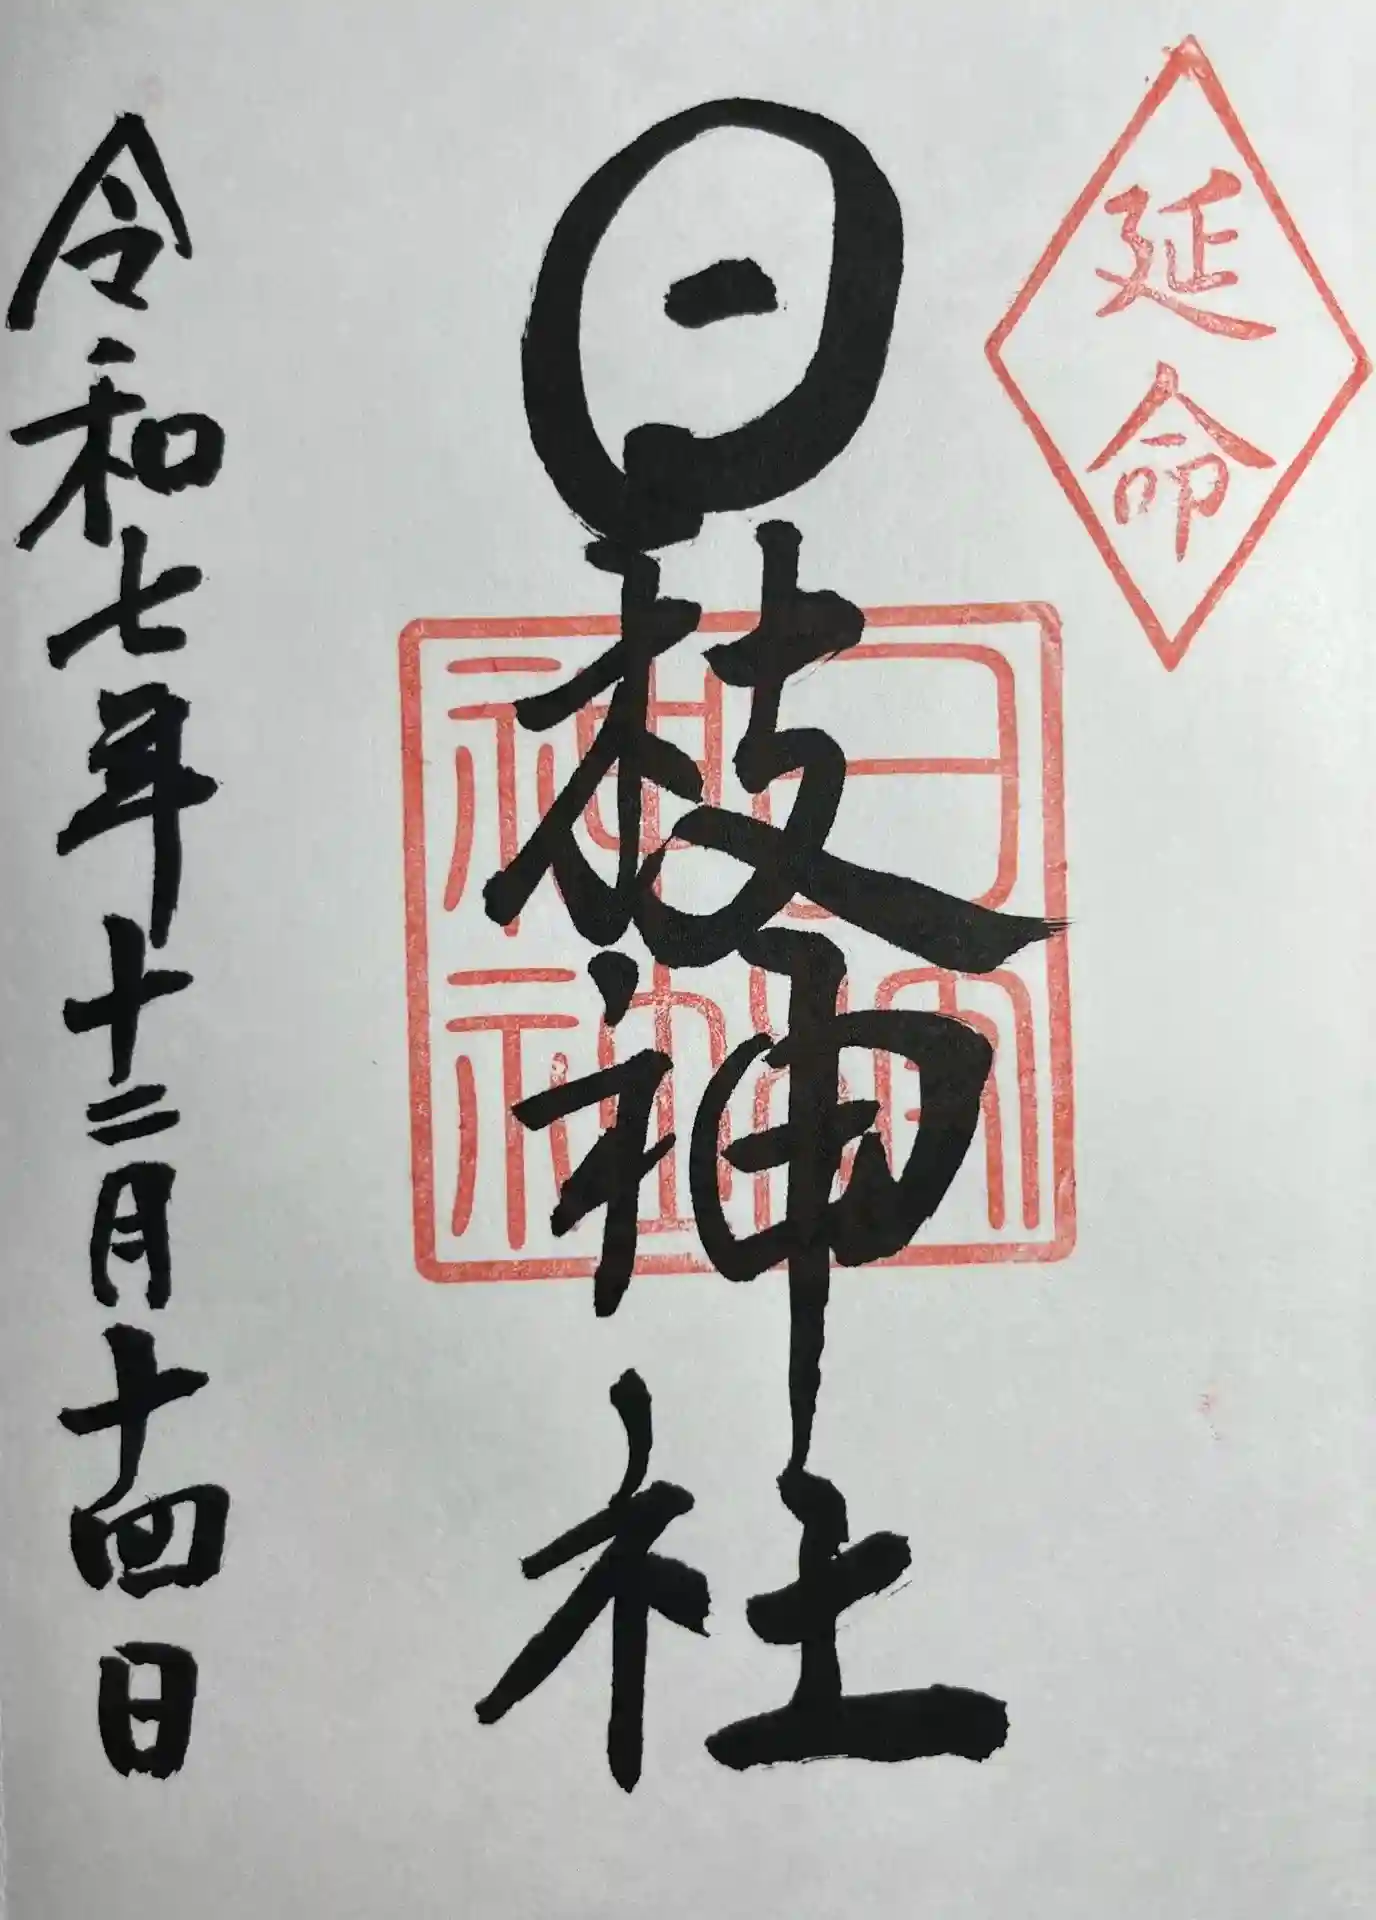 延命
日枝神社
日枝神社
令和七年十二月十四日